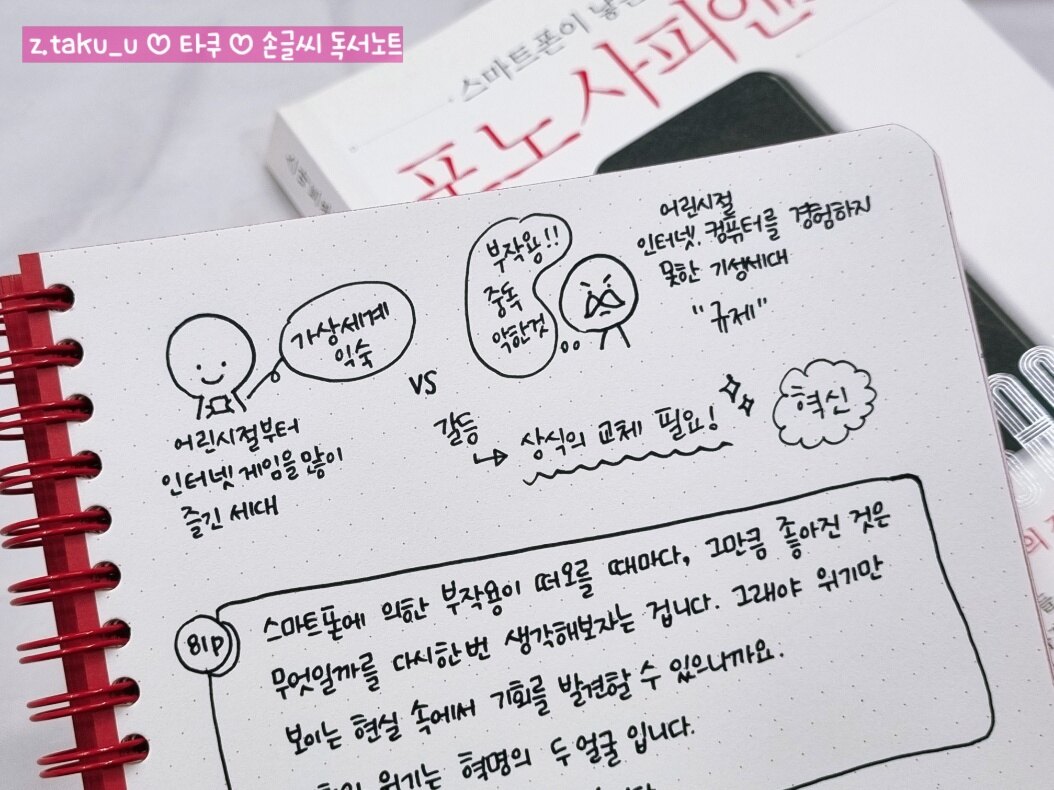 z.taku_u ♡ 타쿠 ♡ 손글씨 독서노트
스마트폰이
포노사피엔
어린시절
인터넷. 컴퓨터를 경험하지
못한 기성세대
"규제"
부작용!!
중독
악한것
가상세계
익숙
vs
어린시절부터
인터넷 게임을 많이
즐긴 세대
갈등
상식의 교체 필요!
혁신
81p
스마트폰에 의한 부작용이 떠오를 때마다, 그만큼 좋아진 것은
무엇일까를 다시한번 생각해보자는 겁니다. 그래야 위기만
보이는 현실 속에서 기회를 발견할 수 있으니까요.
위기는 혁명의 두 얼굴 입니다.